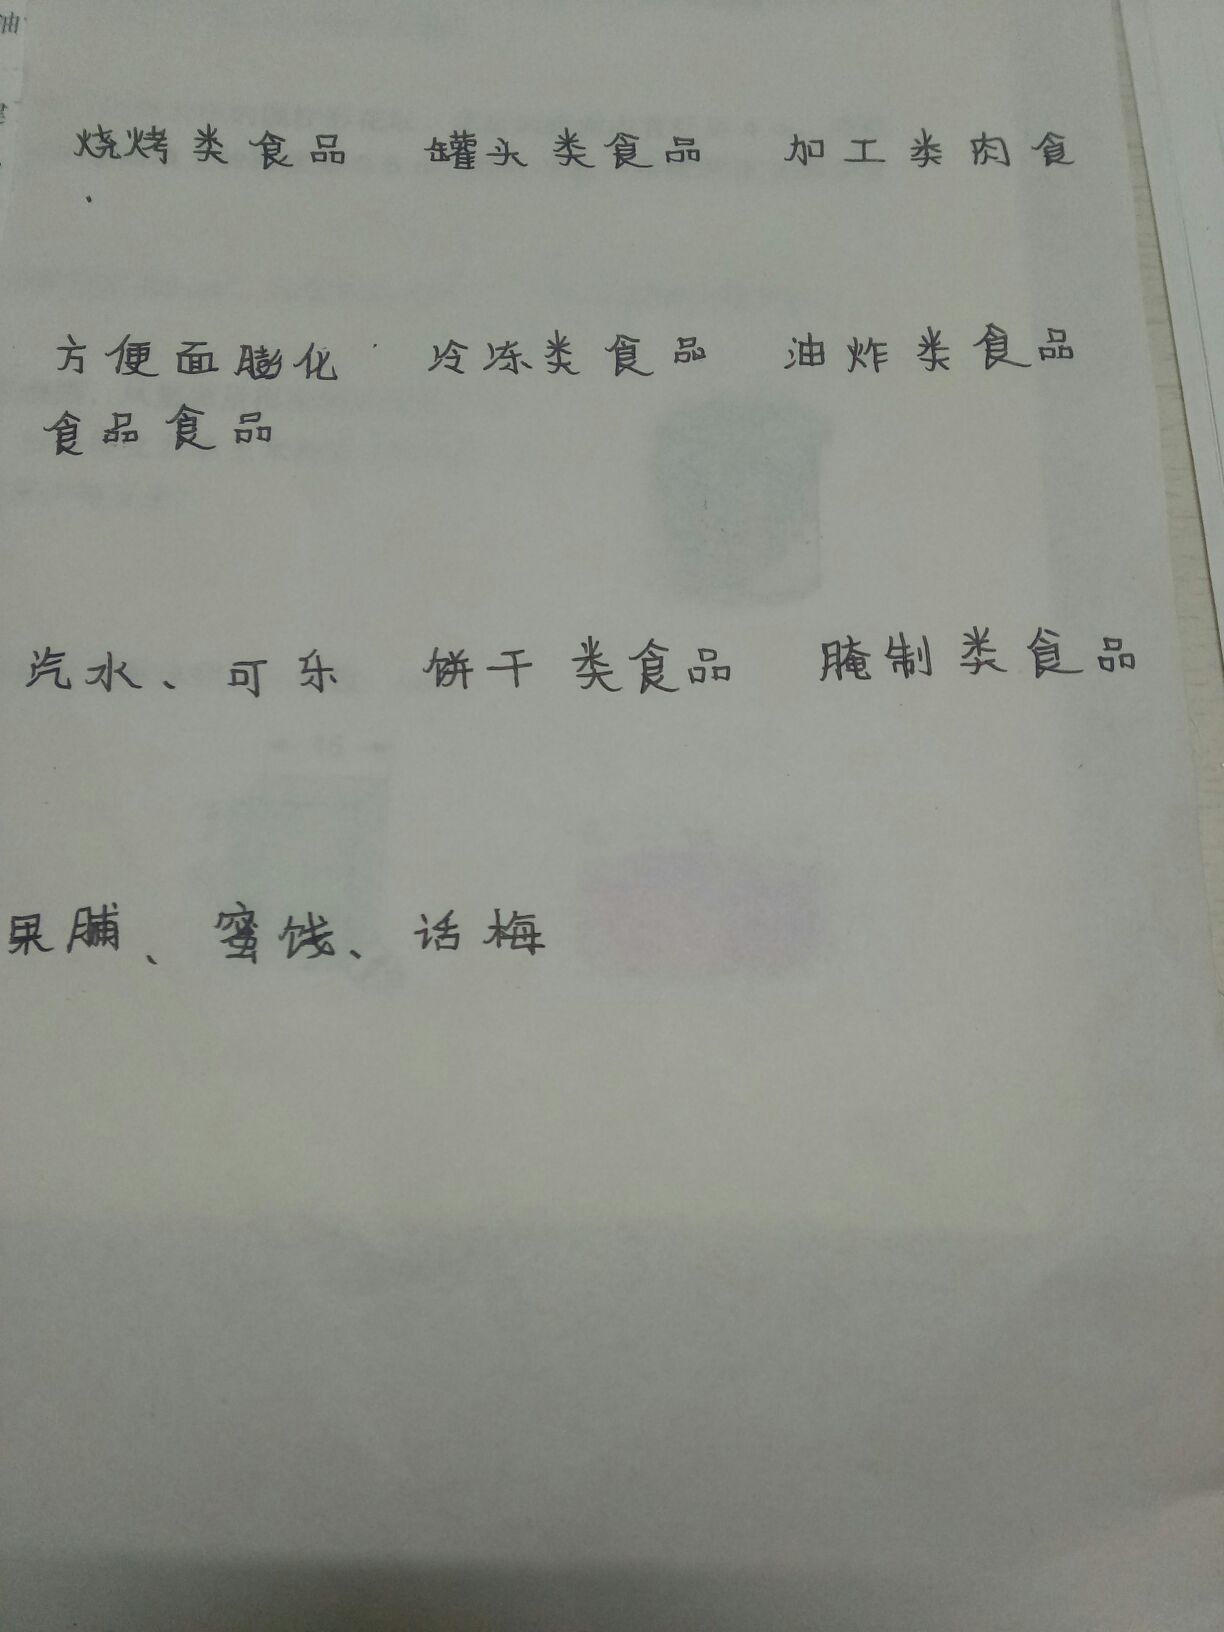 油
烧烤类食品 罐头类食品 加工类肉食
方便面膨化 冷冻类食品 油炸类食品
食品食品
汽水、可乐 饼干类食品 腌制类食品
果脯、蜜饯、话梅